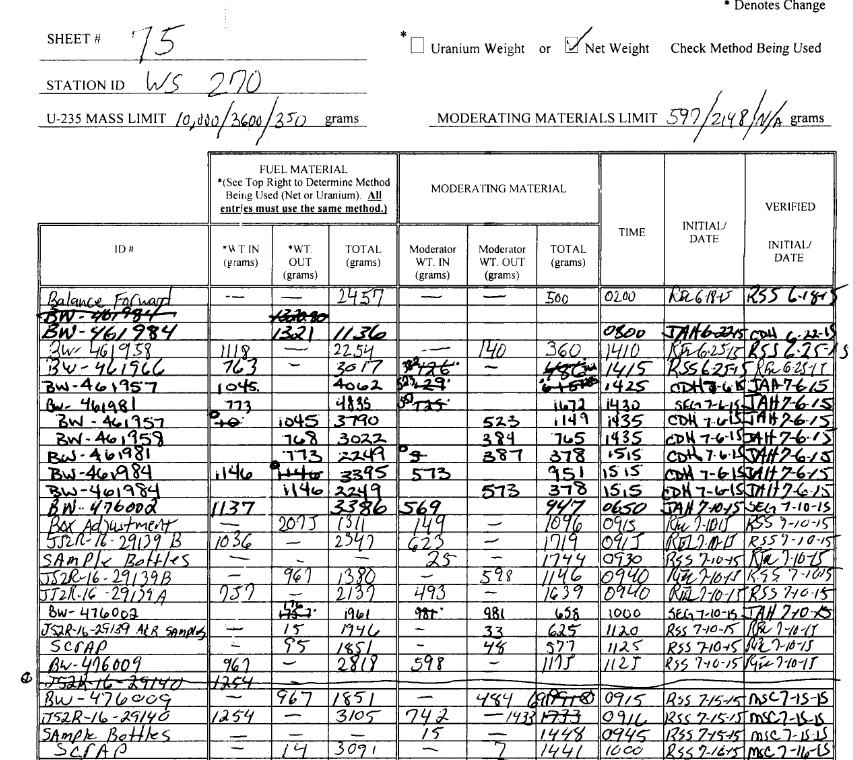 * Denotes Change
SHEET # 75
* Uranium Weight or Net Weight Check Method Being Used
STATION ID WS 270
U-235 MASS LIMIT 10,000/3600/350 grams MODERATING MATERIALS LIMIT 597/2148/N/A grams
FUEL MATERIAL
*(See Top Right to Determine Method Being Used (Net or Uranium). All entries must use the same method.)
MODERATING MATERIAL
TIME
INITIAL/ DATE
VERIFIED INITIAL/ DATE
ID # *WT IN (grams) *WT. OUT (grams) TOTAL (grams) Moderator WT. IN (grams) Moderator WT. OUT (grams) TOTAL (grams)
Balance Forward — — 2457 — — 500 0200 6-18-15 RSS 6-18-15
BW-461984
BW-461984 1321 1136 0800 JAH 6-22-15 CDH 6-22-15
BW-461958 1118 — 2254 — 140 360 1410 6-25-15 RSS 6-25-15
BW-461966 763 — 3017 1415 RSS 6-25-15 6-25-15
BW-461957 1045 4062 1425 CDH 7-6-15 JAH 7-6-15
BW-461981 773 4835 1672 1430 SEG 7-6-15 JAH 7-6-15
BW-461957 1045 3790 523 1149 1435 CDH 7-6-15 JAH 7-6-15
BW-461958 768 3022 384 765 1435 CDH 7-6-15 JAH 7-6-15
BW-461981 773 2249 387 378 1515 CDH 7-6-15 JAH 7-6-15
BW-461984 1146 1146 3395 573 951 1515 CDH 7-6-15 JAH 7-6-15
BW-461984 1146 2249 573 378 1515 CDH 7-6-15 JAH 7-6-15
BW-476002 1137 3386 569 947 0650 JAH 7-10-15 SEG 7-10-15
Box Adjustment — 2075 1311 149 — 1096 0915 7-10-15 RSS 7-10-15
JS2R-16-29139B 1036 — 2347 623 — 1719 0915 7-10-15 RSS 7-10-15
SAmple Bottles — — — 25 — 1744 0930 RSS 7-10-15 7-10-15
JS2R-16-29139B — 967 1380 — 598 1146 0940 7-10-15 RSS 7-10-15
JS2R-16-29139A 757 — 2137 493 — 1639 0940 7-10-15 RSS 7-10-15
BW-476002 176 1961 981 981 658 1000 SEG 7-10-15 JAH 7-10-15
JS2R-16-29139 A&B SAmples — 15 1946 — 33 625 1120 RSS 7-10-15 7-10-15
SCRAP — 95 1851 — 48 577 1125 RSS 7-10-15 7-10-15
BW-476009 967 — 2818 598 — 1175 1125 RSS 7-10-15 7-10-15
JS2R-16-29140 1254
BW-476009 — 967 1851 — 484 691 0915 RSS 7-15-15 MSC 7-15-15
JS2R-16-29140 1254 — 3105 742 — 1433 1733 0916 RSS 7-15-15 MSC 7-15-15
SAmple Bottles — — — 15 — 1448 0945 RSS 7-15-15 MSC 7-15-15
SCRAP — 14 3091 — 7 1441 1000 RSS 7-16-15 MSC 7-16-15